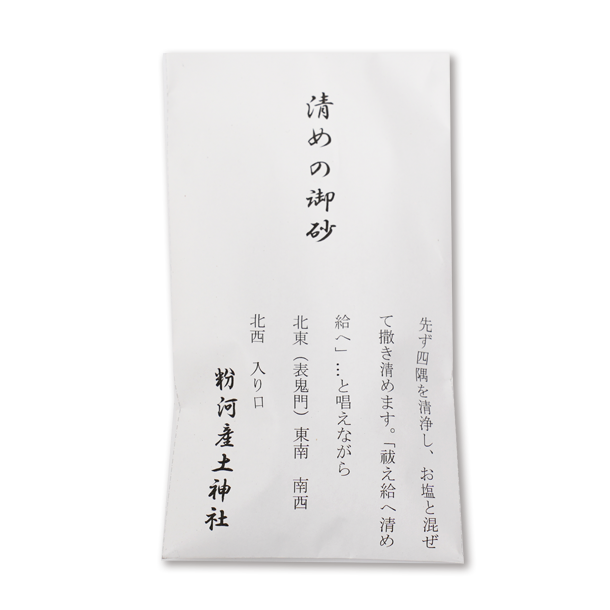 清めの御砂
先ず四隅を清浄し、お塩と混ぜ
て撒き清めます。「祓え給へ清め
給へ」…と唱えながら
北東（表鬼門）東南　南西
北西　入り口
粉河産土神社